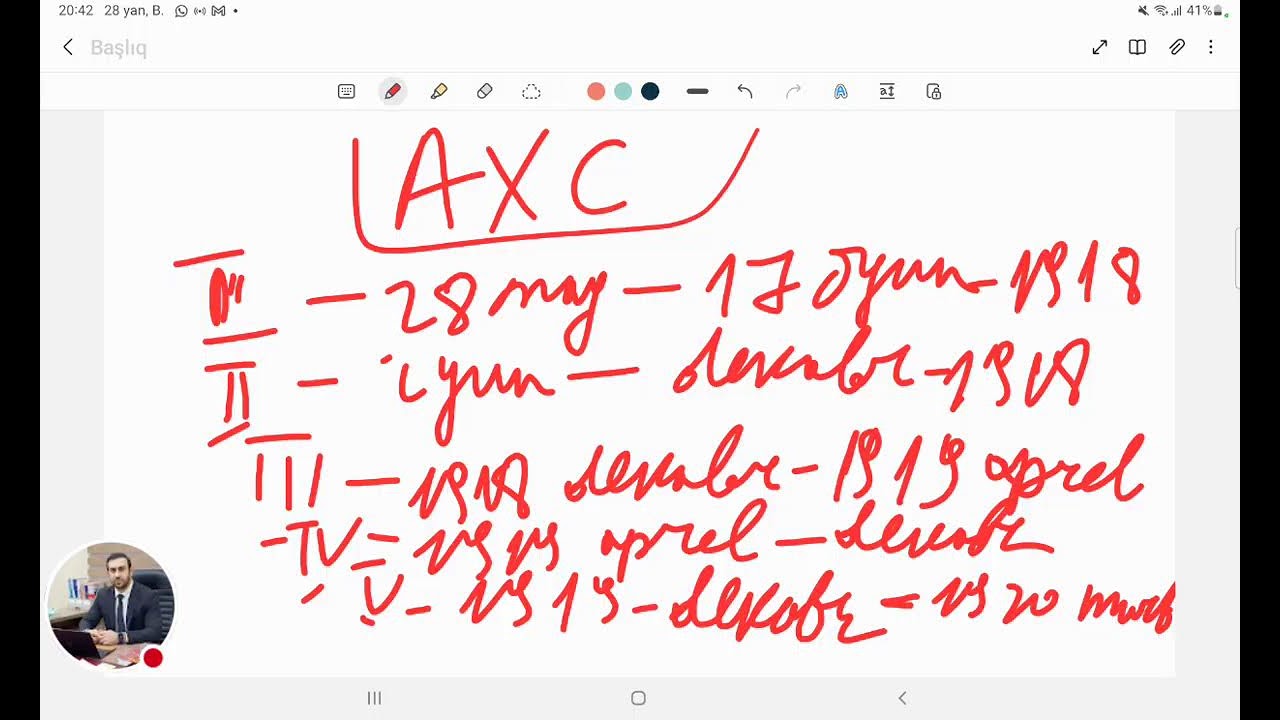 20:42 28 yan, B. 41%
Başlıq
AXC
I - 28 may - 17 iyun - 1918
II - iyun - dekabr - 1918
III - 1918 dekabr - 1919 aprel
- IV - 1919 aprel - dekabr
V - 1919 - dekabr - 1920